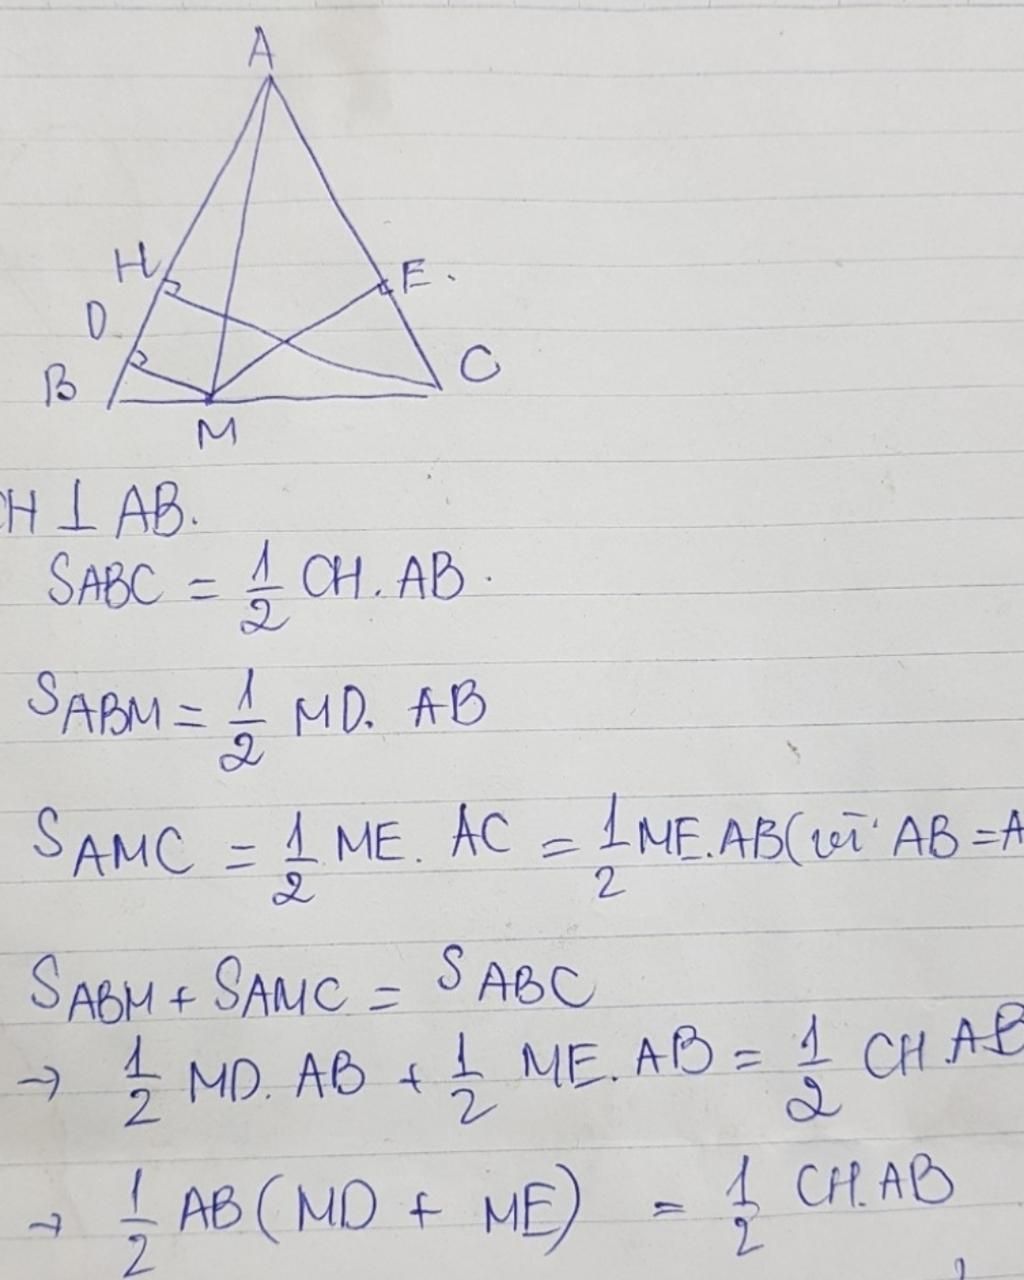 A
H
E.
D
B
C
M
H ⊥ AB.
SABC = 1/2 CH. AB.
SABM = 1/2 MD. AB
SAMC = 1/2 ME. AC = 1/2 ME.AB (vì AB = A
SABM + SAMC = SABC
→ 1/2 MD. AB + 1/2 ME. AB = 1/2 CH.AB
→ 1/2 AB (MD + ME) = 1/2 CH.AB